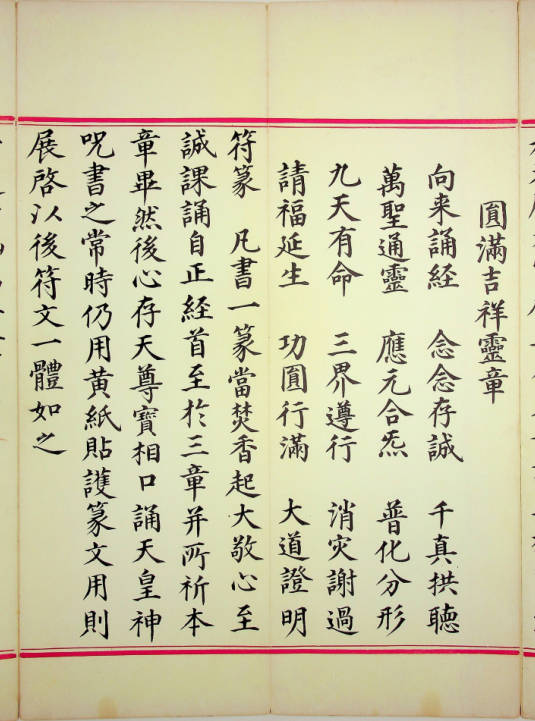 圓滿吉祥靈章
向来誦経 念念存誠 千真拱聴
萬聖通靈 應元合炁 普化分形
九天有命 三界遵行 消灾謝過
請福延生 功圓行滿 大道證明
符篆 凡書一篆當焚香起大敬心至
誠課誦自正経首至於三章并所祈本
章畢然後心存天尊寶相口誦天皇神
咒書之常時仍用黄紙貼護篆文用則
展啓以後符文一體如之